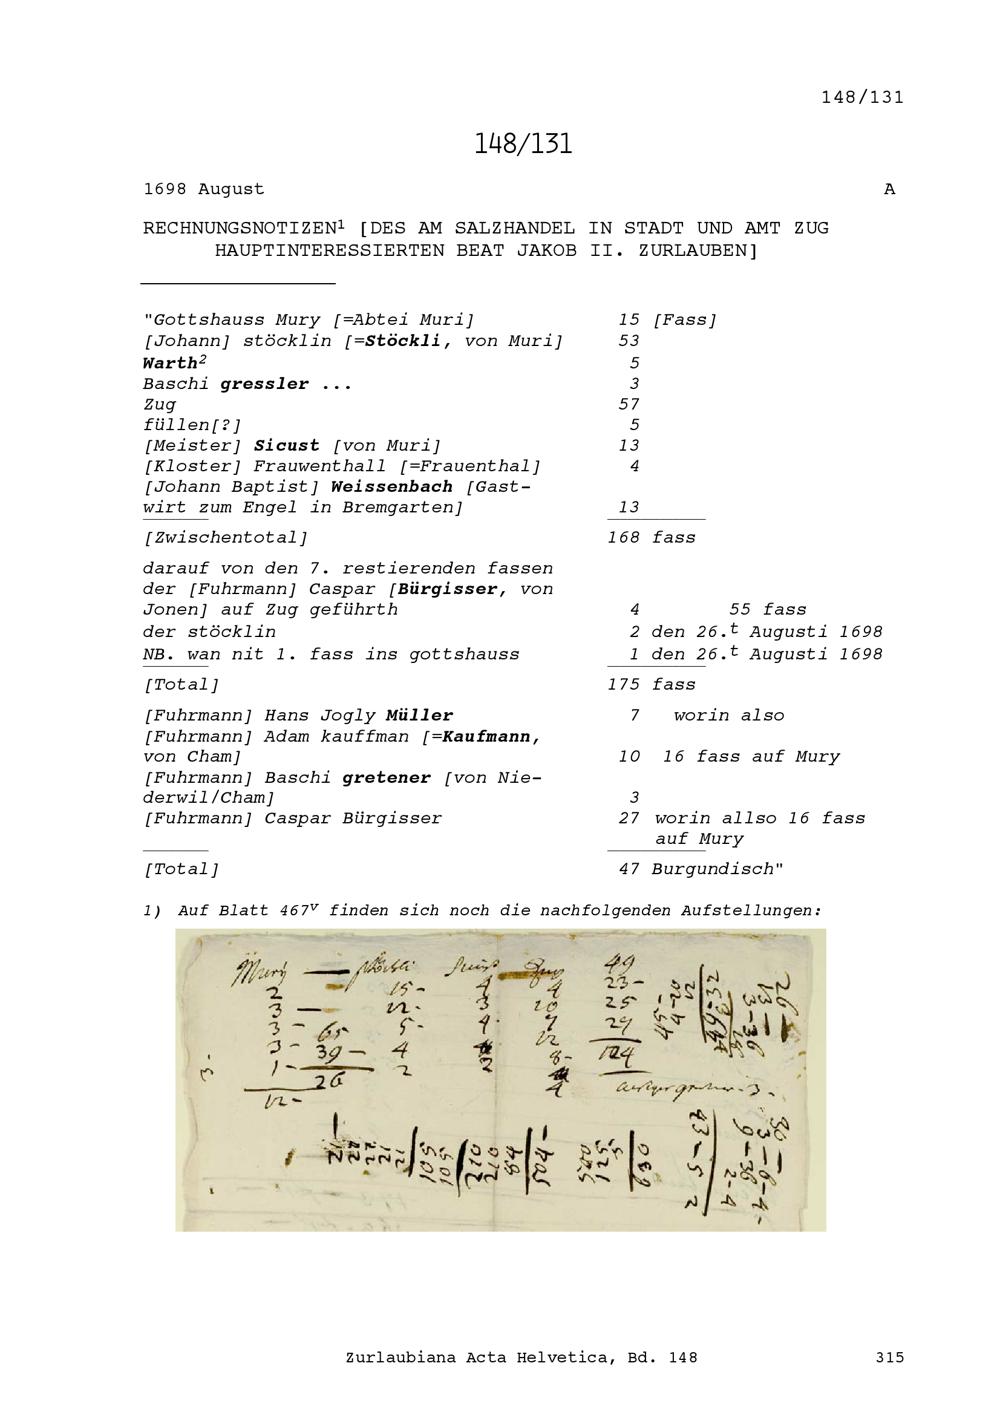 148/131
148/131
1698 August A
RECHNUNGSNOTIZEN¹ [DES AM SALZHANDEL IN STADT UND AMT ZUG
HAUPTINTERESSIERTEN BEAT JAKOB II. ZURLAUBEN]
"Gottshauss Mury [=Abtei Muri] 15 [Fass]
[Johann] stöcklin [=Stöckli, von Muri] 53
Warth² 5
Baschi gressler ... 3
Zug 57
füllen[?] 5
[Meister] Sicust [von Muri] 13
[Kloster] Frauwenthall [=Frauenthal] 4
[Johann Baptist] Weissenbach [Gast-
wirt zum Engel in Bremgarten] 13
[Zwischentotal] 168 fass
darauf von den 7. restierenden fassen
der [Fuhrmann] Caspar [Bürgisser, von
Jonen] auf Zug geführth 4 55 fass
der stöcklin 2 den 26.t Augusti 1698
NB. wan nit 1. fass ins gottshauss 1 den 26.t Augusti 1698
[Total] 175 fass
[Fuhrmann] Hans Jogly Müller 7 worin also
[Fuhrmann] Adam kauffman [=Kaufmann,
von Cham] 10 16 fass auf Mury
[Fuhrmann] Baschi gretener [von Nie-
derwil/Cham] 3
[Fuhrmann] Caspar Bürgisser 27 worin allso 16 fass
auf Mury
[Total] 47 Burgundisch"
1) Auf Blatt 467v finden sich noch die nachfolgenden Aufstellungen:
Mury — 49
2 15- 4 4 23-
3 — 12- 3 20 25
3 - 65 5- 4 7 29
3 - 39 — 4 12 124
1 - 26 2 2 8-
12 - 4
Zurlaubiana Acta Helvetica, Bd. 148 315